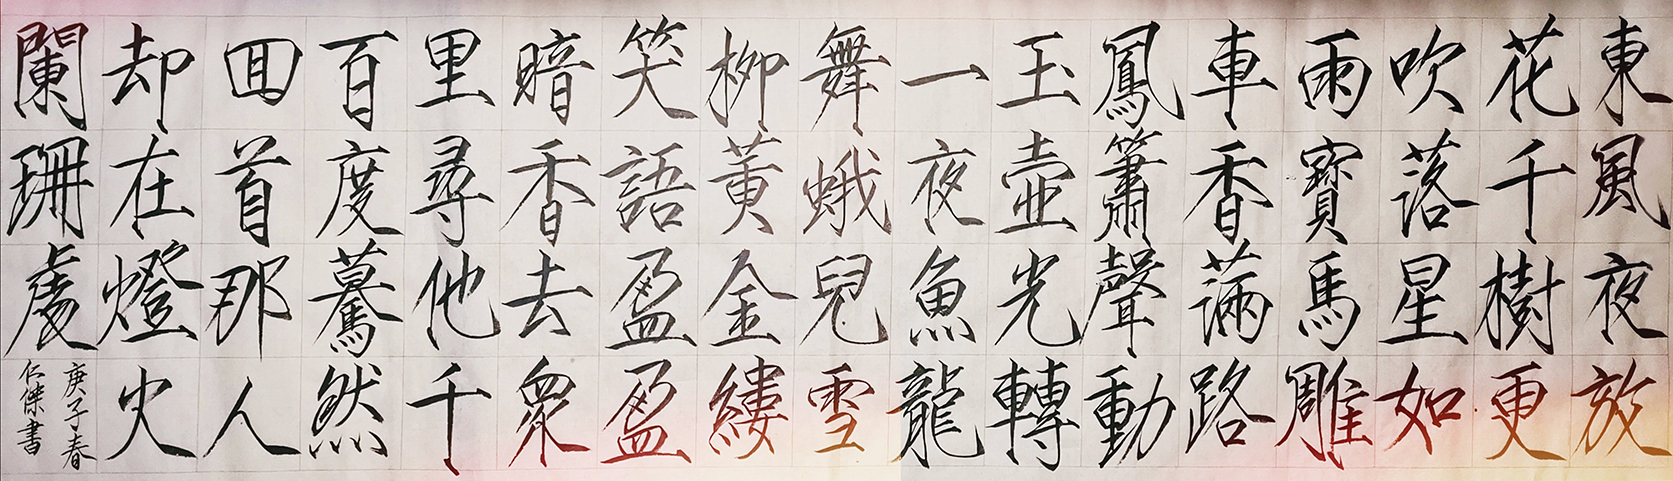 東風夜放
花千樹更
吹落星如
雨寶馬雕
車香滿路
鳳簫聲動
玉壺光轉
一夜魚龍
舞蛾兒雪
柳黃金縷
笑語盈盈
暗香去衆
里尋他千
百度驀然
回首那人
却在燈火
闌珊處
庚子春
仁傑書